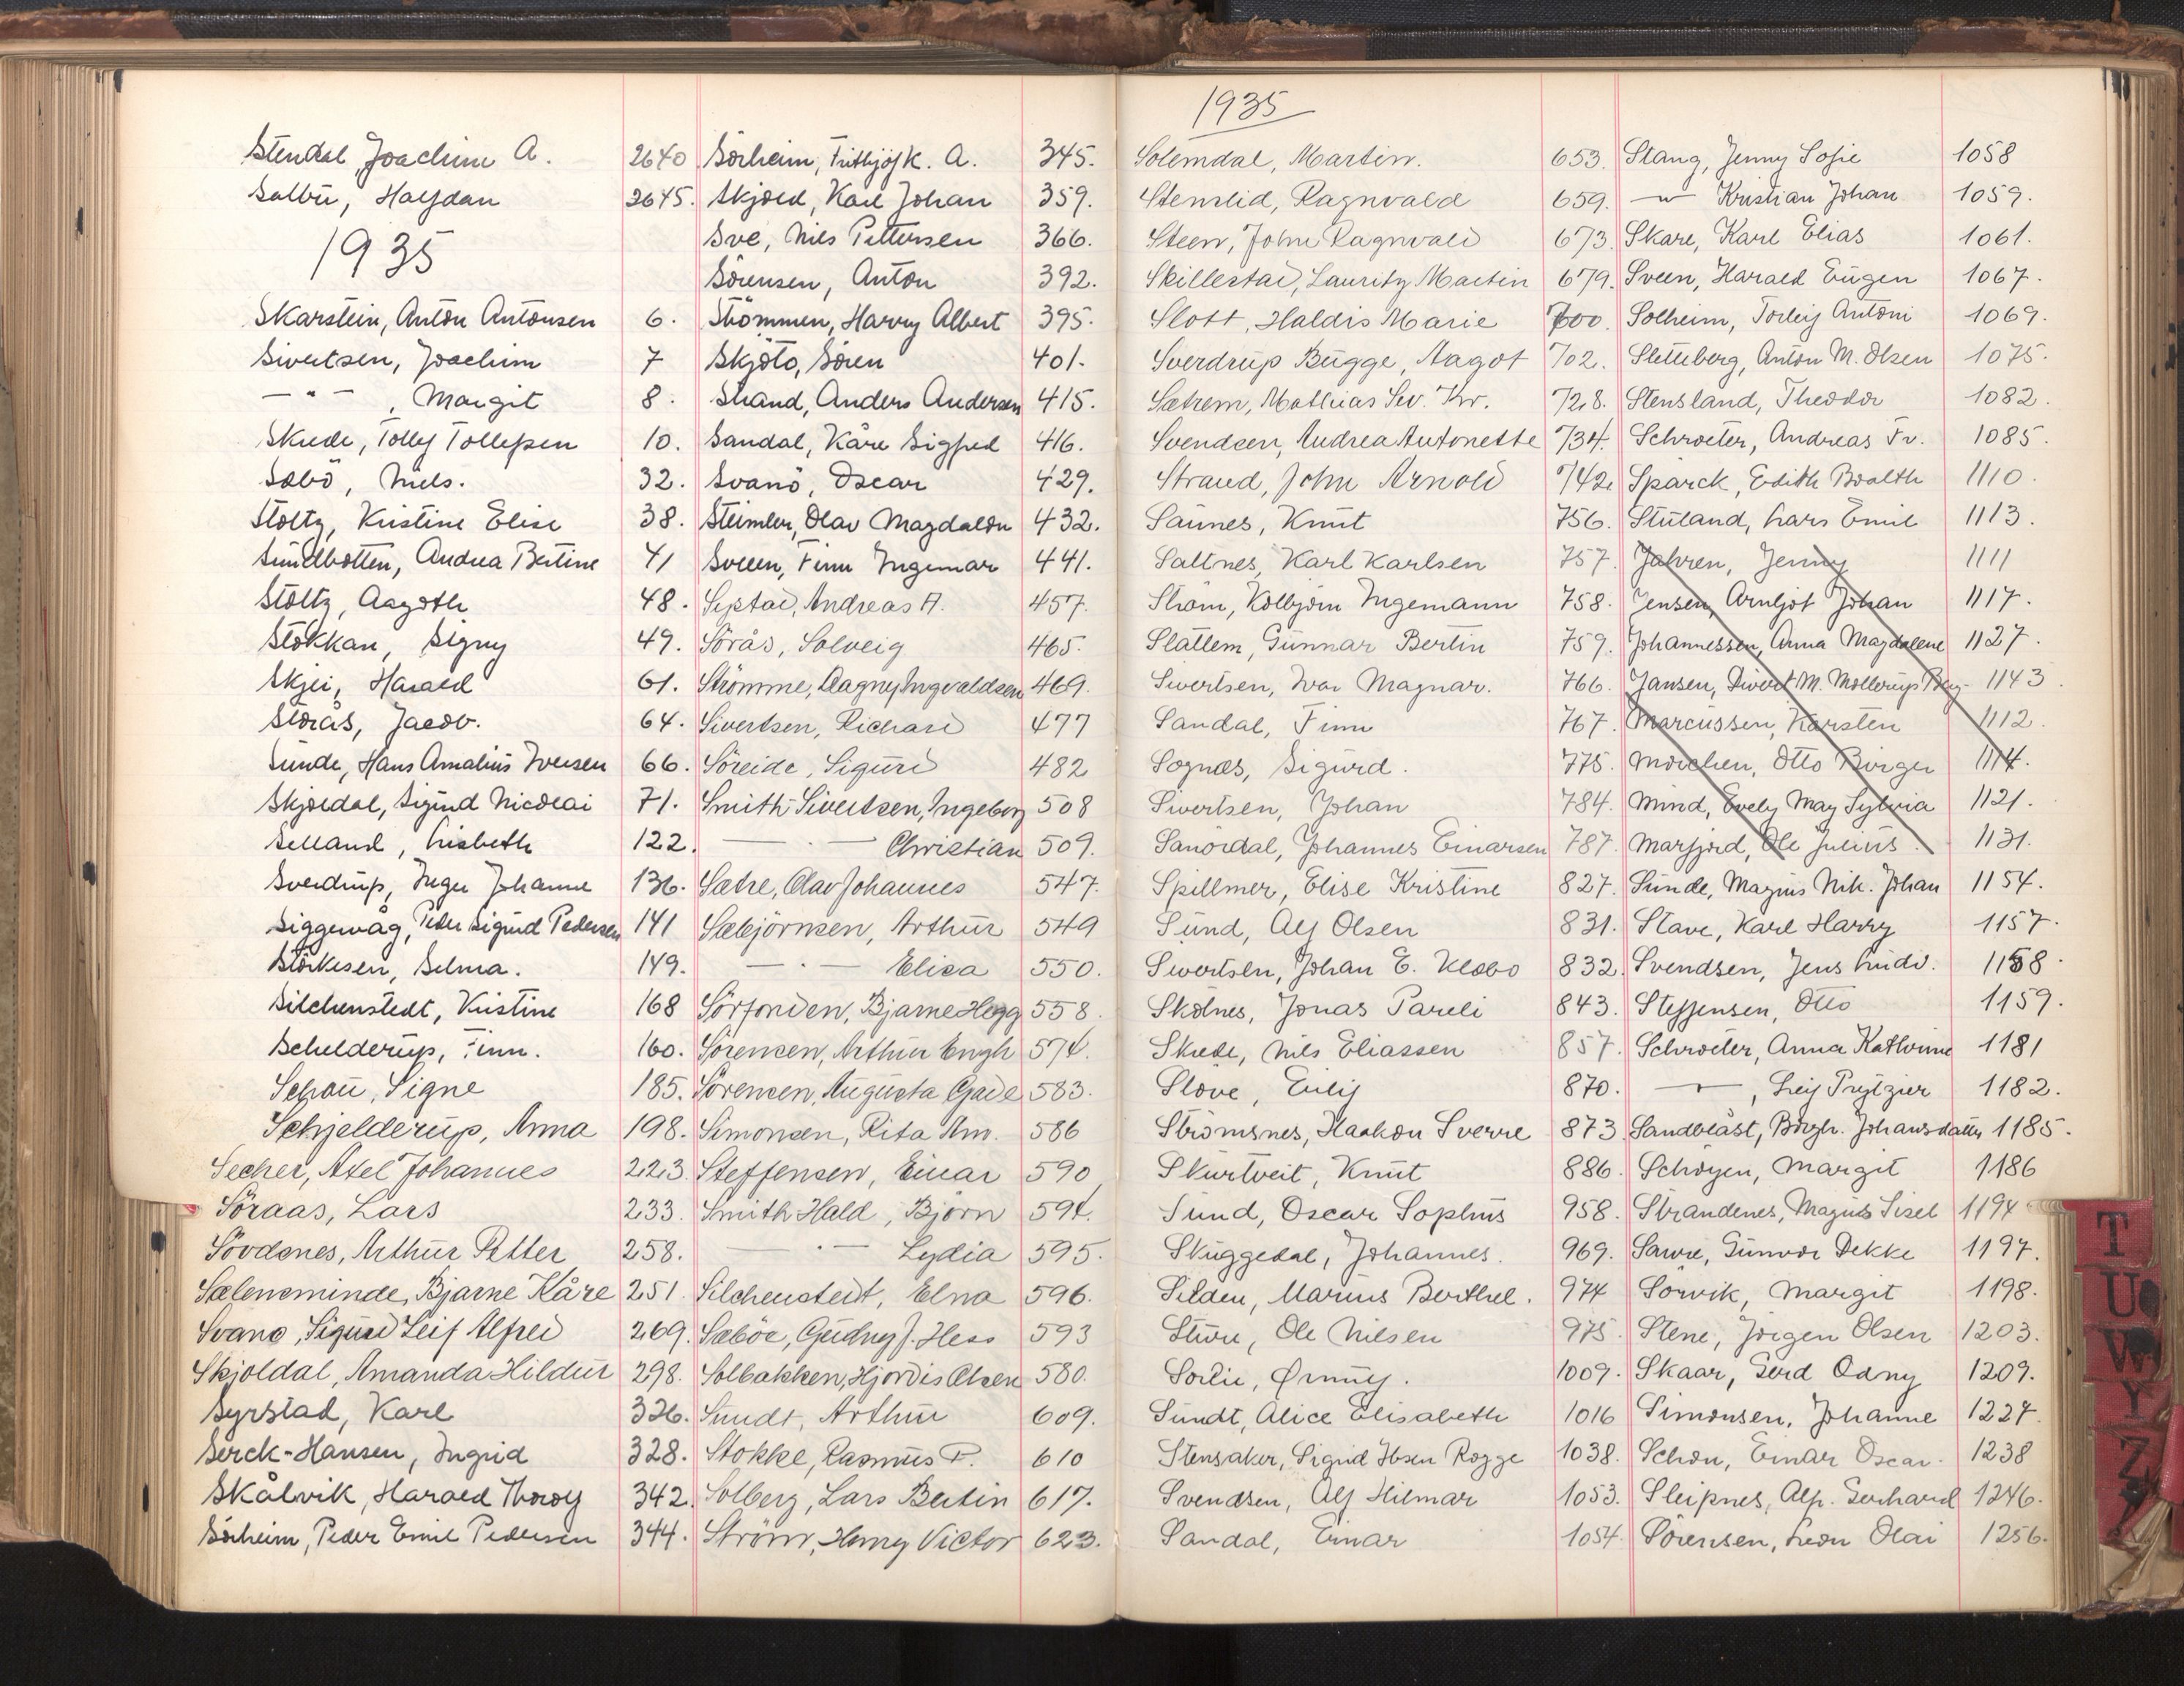 Stendal, Joachim A. 2640
Salbu, Halfdan 2645.
1935
Skarstein, Anton Antonsen 6.
Sivertsen, Joachim 7
— " — , Margit 8.
Skrede, Tollef Tollefsen 10.
Sæbö, Niels. 32.
Stoltz, Kristine Elise 38.
Sundbotten, Andrea Bertine 41
Stoltz, Aagoth 48.
Stokkan, Signy 49.
Skjei, Harald 61.
Storås, Jacob. 64.
Sunde, Hans Amalius Iversen 66.
Skjoldal, Sigurd Nicolai 71.
Selland, Lisbeth 122.
Sverdrup, Inger Johanne 136.
Siggevåg, Peder Sigurd Pedersen 141
Störkesen, Selma. 149.
Silchenstedt, Kristine 168
Schelderup, Finn. 160.
Schou, Signe 185.
Schjelderup, Anna 198.
Secher, Axel Johannes 223.
Söraas, Lars 233.
Sövdenes, Arthur Petter 258.
Sælensminde, Bjarne Kåre 251.
Svanø, Sigurd Leif Alfred 269.
Skjoldal, Amanda Hildur 298.
Syrstad, Karl 326.
Serck-Hansen, Ingrid 328.
Skålvik, Harald Thorolf 342.
Sörheim, Peder Emil Pedersen 344.
Sörheim, Fritjof K. A. 345.
Skjold, Karl Johan 359.
Sve, Nils Pettersen 366.
Sörensen, Anton 392.
Strömmen, Harry Albert 395.
Skjöto, Sören 401.
Strand, Anders Andersen 415.
Sandal, Kåre Sigfred 416.
Svanö, Oscar 429.
Steimler, Olav Magdalon 432.
Sveen, Finn Ingemar 441.
Seystad, Andreas A. 457.
Sörås, Solveig 465.
Strömme, Dagny Ingvaldsen 469.
Sivertsen, Richard 477
Söreide, Sigurd 482
Smith-Sivertsen, Ingeborg 508
— · — Christian 509.
Sætre, Olav Johannes 547.
Sæbjörnsen, Arthur 549
— · — Elisa 550.
Sörfonden, Bjarne Hegg 558.
Sörensen, Arthur Engh 574.
Sörensen, Augusta Gade 583.
Simonsen, Rita Am. 586
Steffensen, Einar 590
Smith Hald, Björn 594.
— · — Lydia 595.
Silchenstedt, Elna 596.
Sæböe, Gudny J. Hess 593
Solbakken, Hjördis Olsen 580.
Sundt, Arthur 609.
Stokke, Rasmus P. 610
Solberg, Lars Bertin 617.
Ström, Henry Victor 623.
1935
Solemdal, Martin. 653.
Stenslid, Ragnvald 659.
Steen, John Ragnvald 673.
Skillestad, Lauritz Martin 679.
Slott, Haldis Marie 700.
Sverdrup Bugge, Aagot 702.
Sætrem, Mathias Sev. Kr. 728.
Svendsen, Andrea Antonette 734.
Strand, John Arnold 742.
Saunes, Knut 756.
Saltnes, Karl Karlsen 757.
Ström, Kolbjörn Ingemann 758.
Slattem, Gunnar Bertin 759.
Sivertsen, Ivar Magnar. 766.
Sandal, Finn 767.
Sognæs, Sigurd. 775.
Sivertsen, Johan 784.
Sanördal, Johannes Einarsen 787.
Spillmer, Elise Kristine 827.
Sund, Alf Olsen 831.
Sivertsen, Johan E. Klæbo 832.
Skolnes, Jonas Pareli 843.
Skrede, Nils Eliassen 857.
Slöve, Eilif 870.
Strömsnes, Haakon Sverre 873.
Skurtveit, Knut 886.
Sund, Oscar Sophus 958.
Skuggedal, Johannes. 969.
Silden, Marius Berthel. 974
Sture, Ole Nilsen 975.
Sorlie, Ørnulf. 1009.
Sundt, Alice Elisabeth 1016
Stensaker, Sigrid Ibsen Rogge 1038.
Svendsen, Alf Hilmar 1053.
Sandal, Einar 1054.
Stang, Jenny Sofie 1058
— " — Kristian Johan 1059.
Skare, Karl Elias 1061.
Sveen, Harald Eugen 1067.
Solheim, Torleif Antoni 1069.
Sletteberg, Anton M. Olsen 1075.
Stensland, Theodor 1082.
Schroeter, Andreas Fr. 1085.
Sparck, Edith Boalth 1110.
Stuland, Lars Emil 1113.
Jahren, Jenny 1111
Jensen, Arnljot Johan 1117.
Johannessen, Anna Magdalene 1127.
Jansen, Sivert M. Mollerup 1143.
Marcussen, Karsten 1112.
Morchen, Otto Birger 1114.
Mind, Evely May Sylvia 1121.
Marfjord, Ole Julius. 1131.
Sunde, Magnus Nik. Johan 1154.
Stave, Karl Harry 1157.
Svendsen, Jens Ludv. 1158.
Steffensen, Otto 1159.
Schroeter, Anna Kathrine 1181
— " — , Leif Prytzier 1182.
Sandblåst, Borgh. Johansdatter 1185.
Schöyen, Margit 1186
Strandenes, Magnus Sisel 1194
Sawe, Gunvor Dekke 1197.
Sorvik, Margit 1198.
Stene, Jörgen Olsen 1203.
Skaar, Gerd Odny 1209.
Simonsen, Johanne 1227.
Schou, Einar Oscar. 1238
Sleipnes, Alf. Gerhard 1246.
Sörensen, Leon Olai 1256.
T
U
W
Y
Z